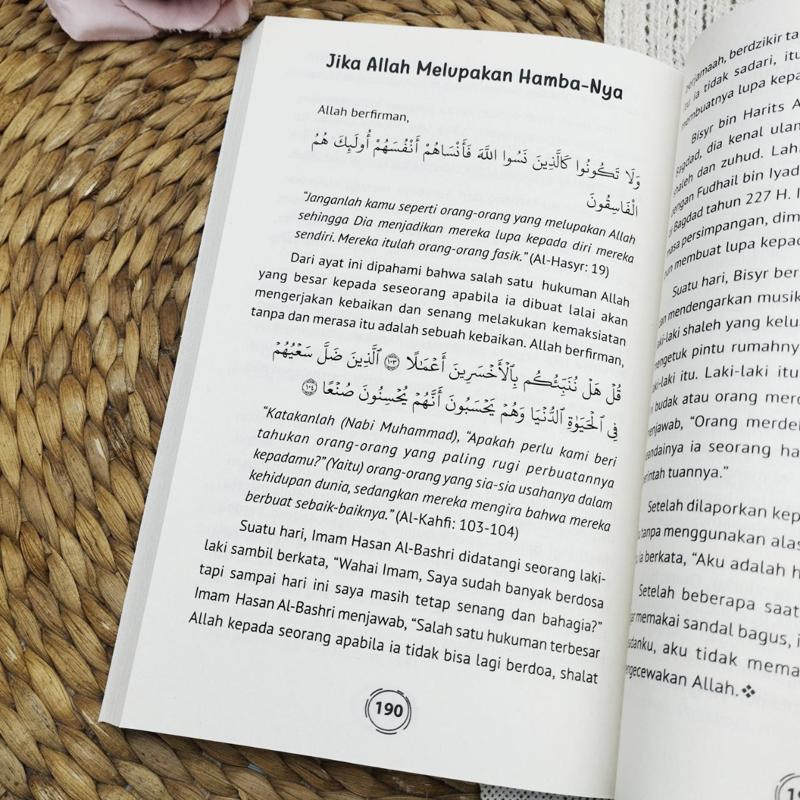 Jika Allah Melupakan Hamba-Nya
Allah berfirman,
وَلَا تَكُونُوا كَالَّذِينَ نَسُوا اللَّهَ فَأَنْسَاهُمْ أَنْفُسَهُمْ أُولَٰئِكَ هُمُ
الْفَاسِقُونَ
"Janganlah kamu seperti orang-orang yang melupakan Allah
sehingga Dia menjadikan mereka lupa kepada diri mereka
sendiri. Mereka itulah orang-orang fasik." (Al-Hasyr: 19)
Dari ayat ini dipahami bahwa salah satu hukuman Allah
yang besar kepada seseorang apabila ia dibuat lalai akan
mengerjakan kebaikan dan senang melakukan kemaksiatan
tanpa dan merasa itu adalah sebuah kebaikan. Allah berfirman,
قُلْ هَلْ نُنَبِّئُكُم بِٱلْأَخْسَرِينَ أَعْمَـٰلًا ١٠٣ ٱلَّذِينَ ضَلَّ سَعْيُهُمْ
فِى ٱلْحَيَوٰةِ ٱلدُّنْيَا وَهُمْ يَحْسَبُونَ أَنَّهُمْ يُحْسِنُونَ صُنْعًا ١٠٤
"Katakanlah (Nabi Muhammad), "Apakah perlu kami beri
tahukan orang-orang yang paling rugi perbuatannya
kepadamu?" (Yaitu) orang-orang yang sia-sia usahanya dalam
kehidupan dunia, sedangkan mereka mengira bahwa mereka
berbuat sebaik-baiknya." (Al-Kahfi: 103-104)
Suatu hari, Imam Hasan Al-Bashri didatangi seorang laki-
laki sambil berkata, "Wahai Imam, Saya sudah banyak berdosa
tapi sampai hari ini saya masih tetap senang dan bahagia?"
Imam Hasan Al-Bashri menjawab, "Salah satu hukuman terbesar
Allah kepada seorang apabila ia tidak bisa lagi berdoa, shalat
190
berdzikir
ia tidak sadari, itu
lupa
Bisyr bin Harits
dia kenal
dan zuhud.
Fudhail bin
Bagdad tahun 227 H.
persimpangan,
membuat lupa
Suatu hari, Bisyr
mendengarkan musik
shaleh yang
pintu rumahnya
itu. Laki-laki itu
budak atau orang
"Orang
ia seorang
tuannya."
Setelah dilaporkan
tanpa menggunakan
berkata, "Aku adalah
Setelah beberapa
memakai sandal bagus,
aku tidak
Allah.❖